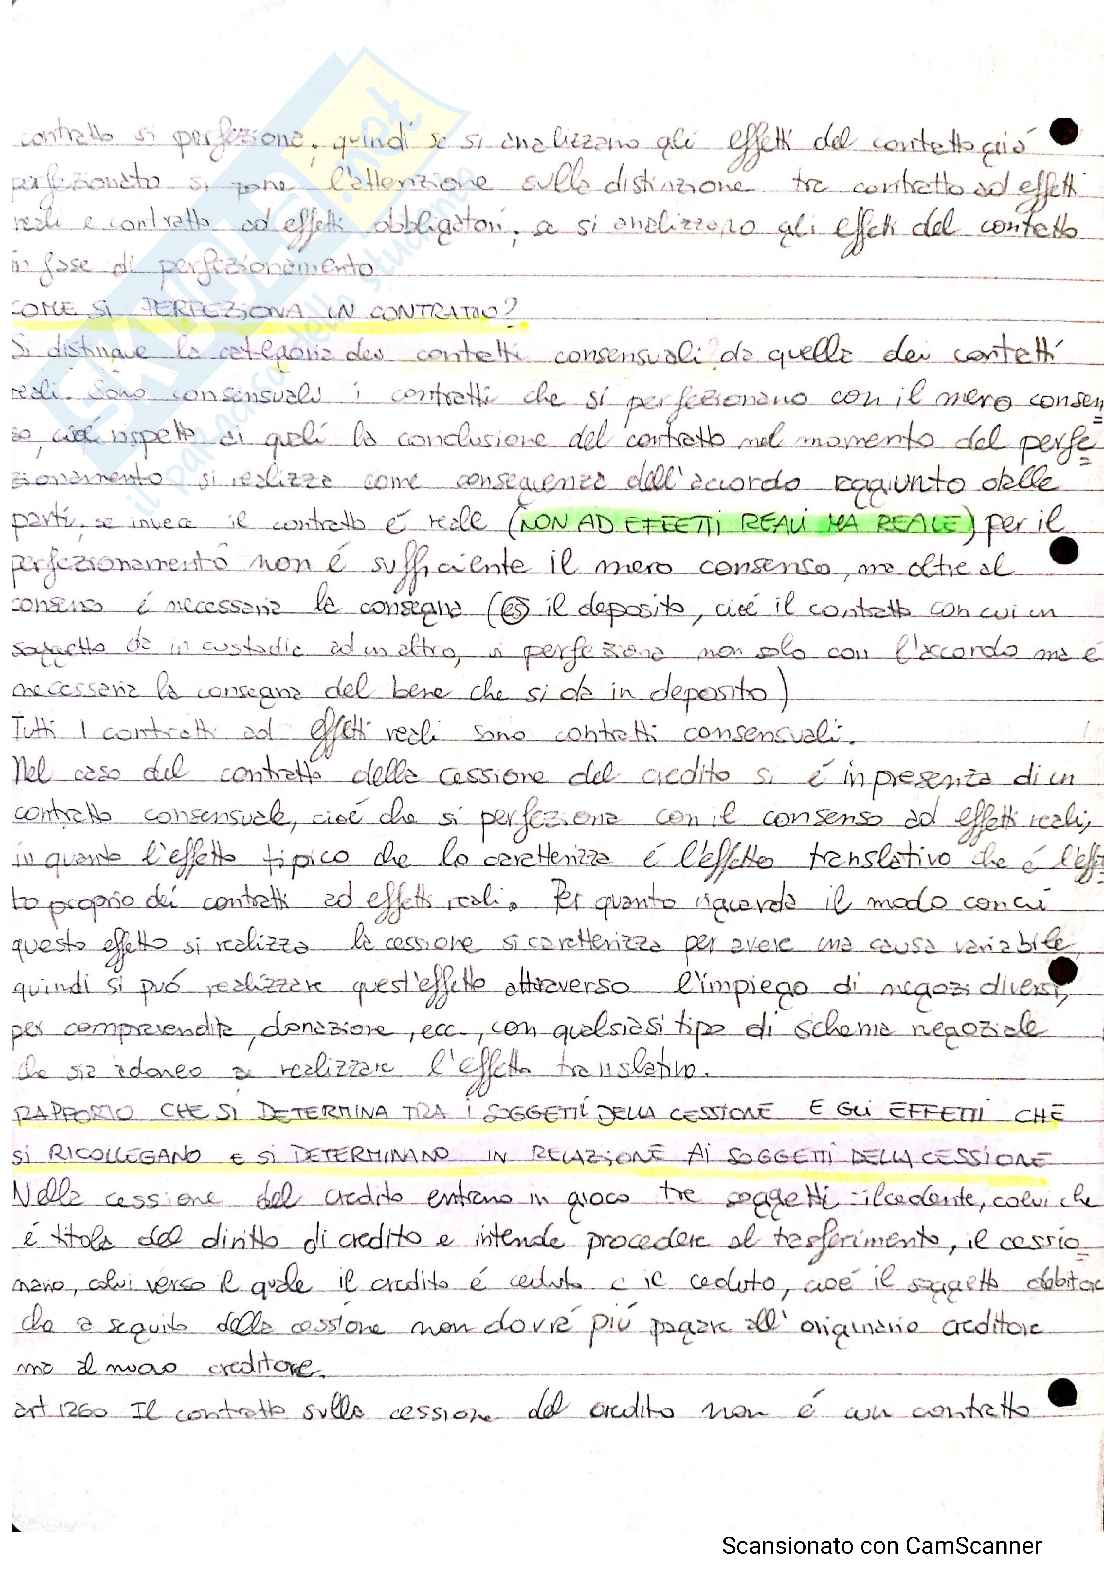 contratto si perfeziona, quindi se si analizzano gli effetti del contratto giá
perfezionato si pone l'attenzione sulla distinzione tra contratto ad effetti
reali e contratto ad effetti obbligatori, se si analizzano gli effeti del contratto
in fase di perfezionamento
COME SI PERFEZIONA UN CONTRATTO?
Si distingue la categoria dei contratti consensuali da quella dei contratti
reali. Sono consensuali i contratti che si perfezionano con il mero consen=
so, cioé rispetto ai quali la conclusione del contratto nel momento del perfe=
zionamento si realizza come conseguenza dell'accordo raggiunto dalle
parti, se invece il contratto é reale (NON AD EFFETTI REALI MA REALE) per il
perfezionamento non é sufficiente il mero consenso, ma oltre al
consenso é necessaria la consegna (es il deposito, cioé il contratto con cui un
soggetto da in custodia ad un altro, si perfeziona non solo con l'accordo ma é
necessaria la consegna del bene che si da in deposito)
Tutti I contratti ad effetti reali sono contratti consensuali.
Nel caso del contratto della cessione del credito si é in presenza di un
contratto consensuale, cioé che si perfeziona con il consenso ad effetti reali,
in quanto l'effetto tipico che lo caratterizza é l'effetto translativo che é l'effet=
to proprio dei contratti ad effetti reali. Per quanto riguarda il modo con cui
questo effetto si realizza la cessione si caratterizza per avere una causa variabile,
quindi si puó realizzare quest'effetto attraverso l'impiego di negozi diversi,
per compravendita, donazione, ecc., con qualsiasi tipo di schema negoziale
che sia idoneo a realizzare l'effetto translativo.
RAPPORTO CHE SI DETERMINA TRA I SOGGETTI DELLA CESSIONE E GLI EFFETTI CHE
SI RICOLLEGANO E SI DETERMINANO IN RELAZIONE AI SOGGETTI DELLA CESSIONE
Nella cessione del credito entrano in gioco tre soggetti: il cedente, colui che
é titola del diritto di credito e intende procedere al trasferimento, il cessio=
nario, colui verso il quale il credito é ceduto e il ceduto, cioé il soggetto debitore
che a seguito della cessione non dovrá piú pagare all'originario creditore
ma al nuovo creditore.
art 1260 Il contratto sulla cessione del credito non é un contratto
Scansionato con CamScanner